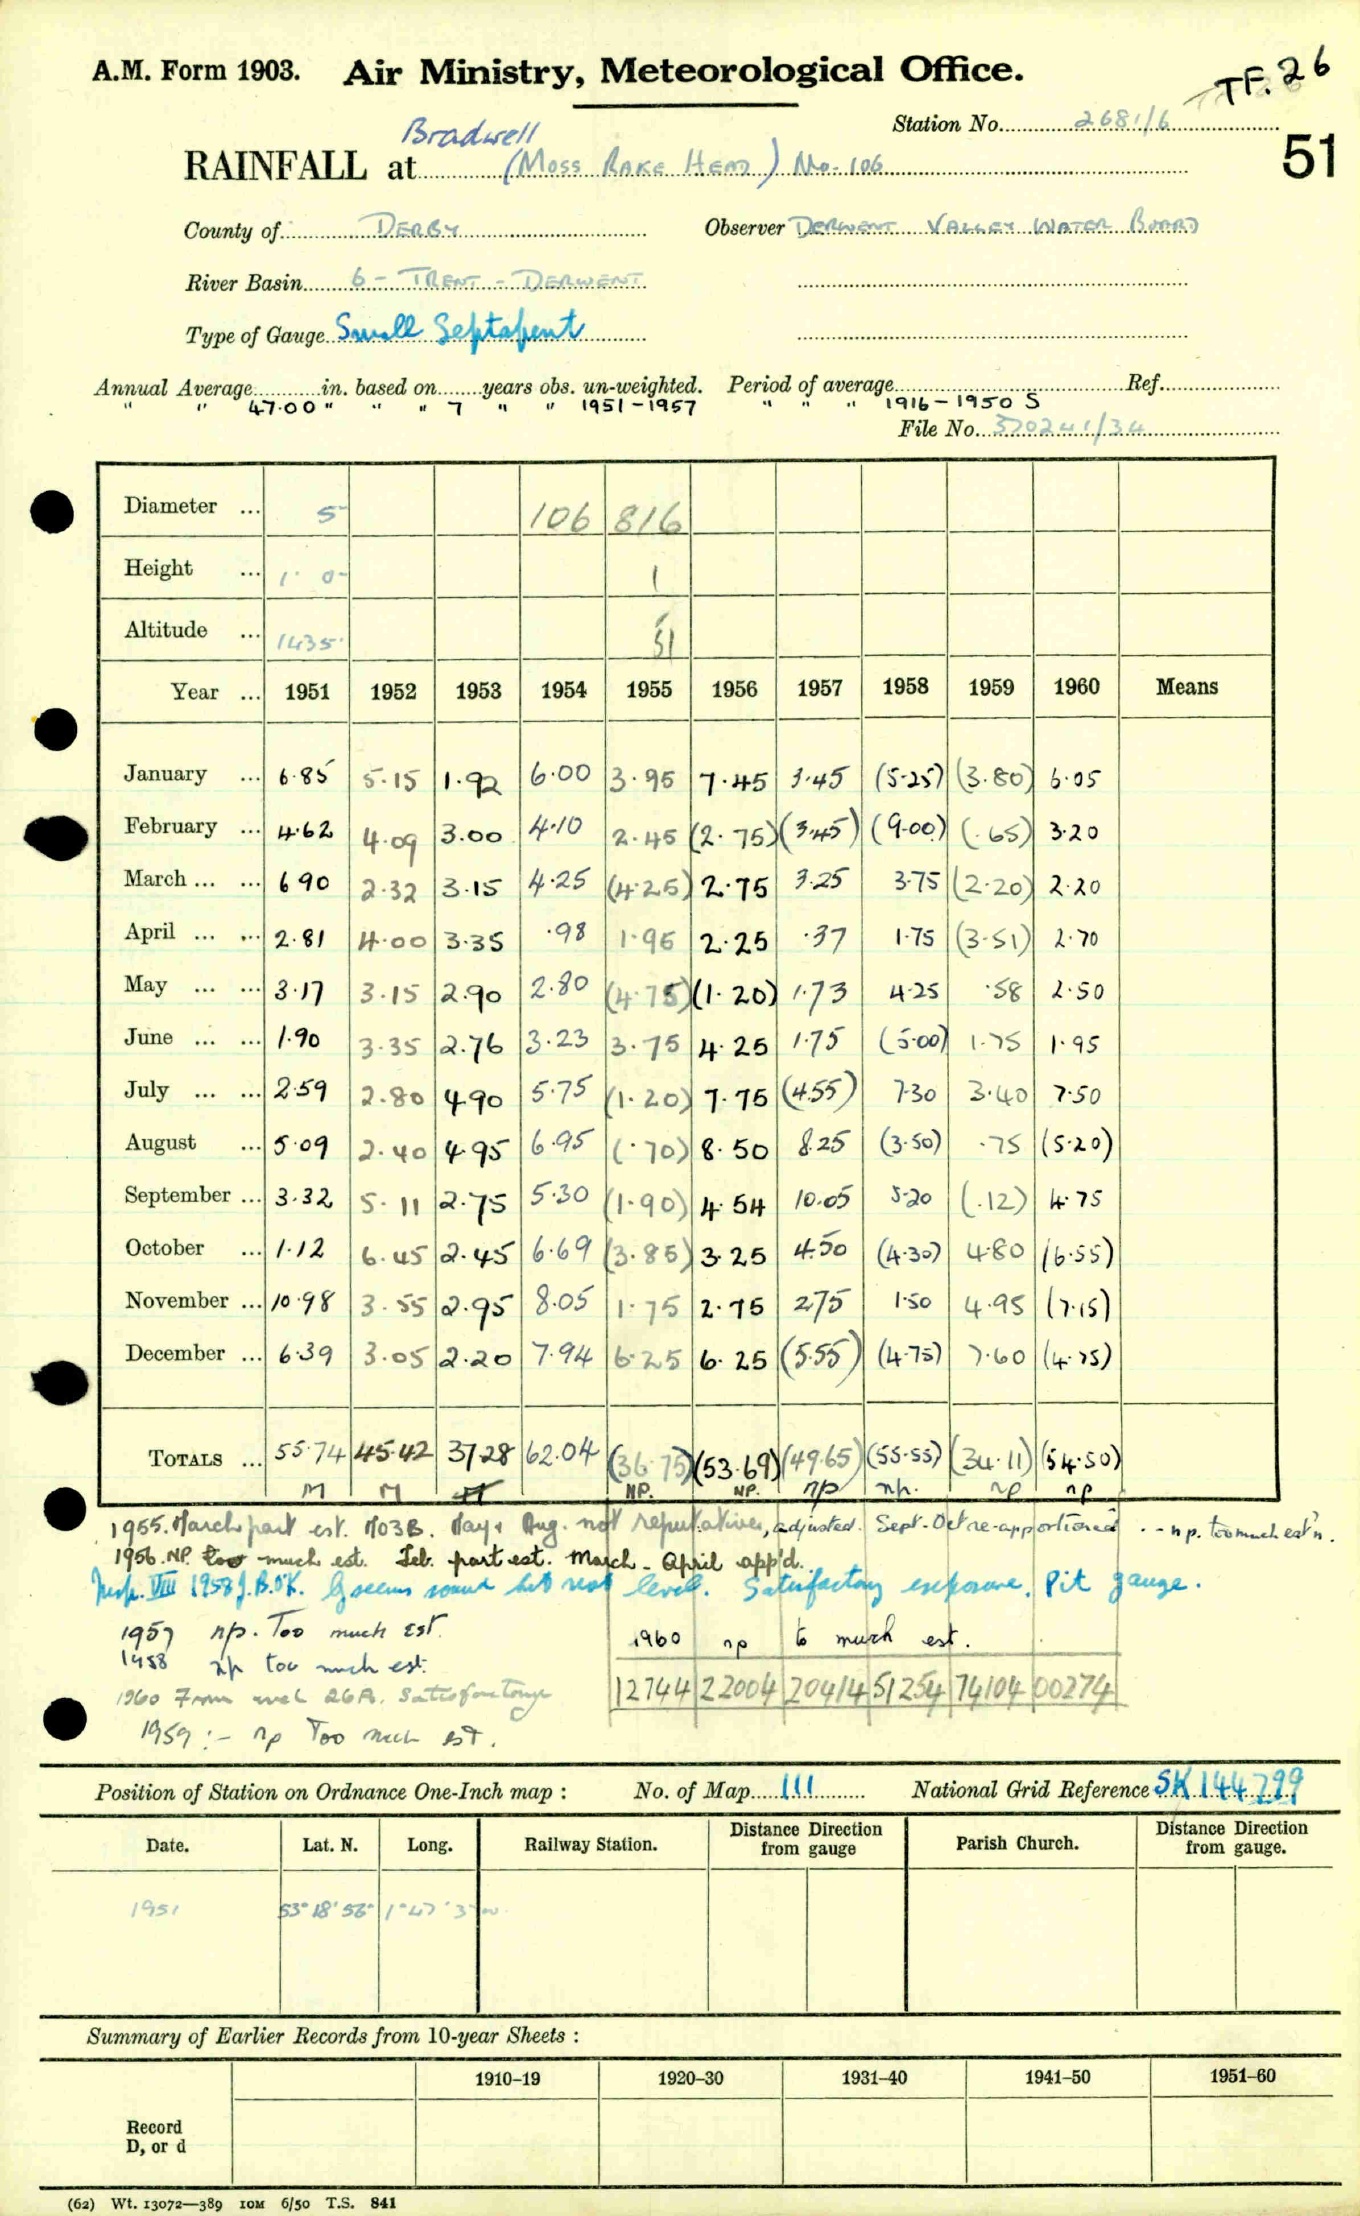 A.M. Form 1903. Air Ministry, Meteorological Office. TF. 26
Station No. 2681/6
51
Bradwell
RAINFALL at (Moss Rake Head) No. 106
County of Derby Observer Derwent Valley Water Board
River Basin 6 - Trent - Derwent
Type of Gauge Small Septapent
Annual Average in. based on years obs. un-weighted. Period of average Ref.
" " 47.00 " " " 7 " " 1951-1957 " " " 1916-1950 S
File No. 370241/34
Diameter ... 5 106 816
Height ... 1. 0 1
Altitude ... 1435 51
Year ... 1951 1952 1953 1954 1955 1956 1957 1958 1959 1960 Means
January ... 6.85 5.15 1.92 6.00 3.95 7.45 3.45 (5.25) (3.80) 6.05
February ... 4.62 4.09 3.00 4.10 2.45 (2.75) (3.45) (9.00) (.65) 3.20
March ... ... 6 90 2.32 3.15 4.25 (4.25) 2.75 3.25 3.75 (2.20) 2.20
April ... ... 2.81 4.00 3.35 .98 1.95 2.25 .37 1.75 (3.51) 2.70
May ... ... 3.17 3.15 2.90 2.80 (4.75) (1.20) 1.73 4.25 .58 2.50
June ... ... 1.90 3.35 2.76 3.23 3.75 4.25 1.75 (5.00) 1.75 1.95
July ... ... 2.59 2.80 4.90 5.75 (1.20) 7.75 (4.55) 7.30 3.40 7.50
August ... 5.09 2.40 4.95 6.95 (.70) 8.50 8.25 (3.50) .75 (5.20)
September ... 3.32 5.11 2.75 5.30 (1.90) 4.54 10.05 5.20 (.12) 4.75
October ... 1.12 6.45 2.45 6.69 (3.85) 3.25 4.50 (4.30) 4.80 (6.55)
November ... 10.98 3.55 2.95 8.05 1.75 2.75 2.75 1.50 4.95 (7.15)
December ... 6.39 3.05 2.20 7.94 6.25 6.25 (5.55) (4.75) 7.60 (4.75)
Totals ... 55.74 45.42 37.28 62.04 (36.75) (53.69) (49.65) (55.55) (34.11) (54.50)
M M NP. NP. np np. np np
1955. March part est. M03B. May & Aug. not reputative, adjusted. Sept-Oct re-apportioned. -- np. too much est'n.
1956. NP too much est. Feb. part est. March - April app'd.
Insp. VIII 1958 J.B.O'K. G seems sound but not level. Satisfactory exposure. Pit gauge.
1957 np. Too much est.
1960 np to much est.
1958 np too much est.
12744 22004 20414 51254 74104 00274
1960 From Satisfactory
1959 :- np Too much est.
Position of Station on Ordnance One-Inch map : No. of Map 111 National Grid Reference SK 144799
Date. Lat. N. Long. Railway Station. Distance Direction from gauge Parish Church. Distance Direction from gauge.
1951 53° 18' 56" 1° 47'
Summary of Earlier Records from 10-year Sheets :
1910–19 1920–30 1931–40 1941–50 1951–60
Record
D, or d
(62) Wt. 13072—389 10M 6/50 T.S. 841